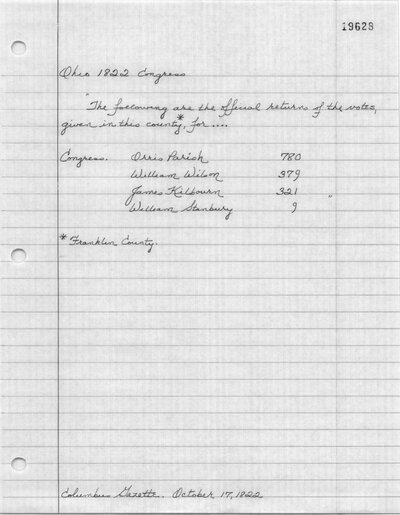 19628
Ohio 1822 Congress
"The following are the official returns of the votes,
given in this county*, for....
Congress. Orris Parish 780
William Wilson 379
James Kilbourn 321 "
William Stanbury 9
* Franklin County.
Columbus Gazette. October 17, 1822